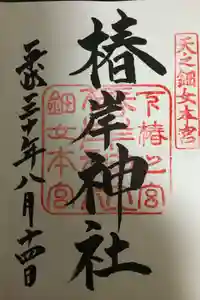 天之鈿女本宮
椿岸神社
下椿之宮
鈿女本宮
平成三十年八月十四日